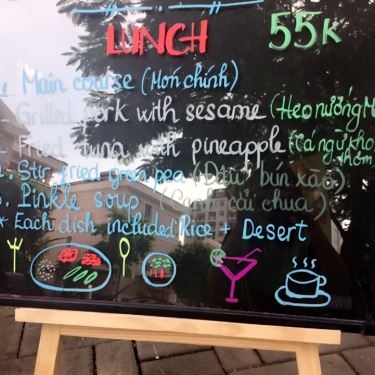 LUNCH 55K
1. Main course (Món chính)
- Grilled pork with sesame (Heo nướng M
- Fried tuna with pineapple (Cá ngừ kho thơm
2. Stir fried green pea (Đậu bún xào)
3. Pinkle soup (Canh cải chua)
* Each dish included Rice + Desert